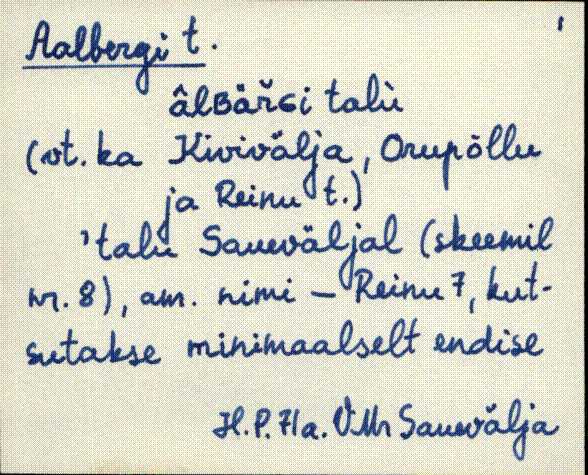 Aalbergi t.
âlʙäřɢi talù
(vt. ka Kivivälja, Orupõllu
ja Reinu t.)
'talu Saueväljal (skeemil
nr. 8), am. nimi – Reinu 7, kut-
sutakse minimaalselt endise
H.P. 71a. VMr Sauevälja